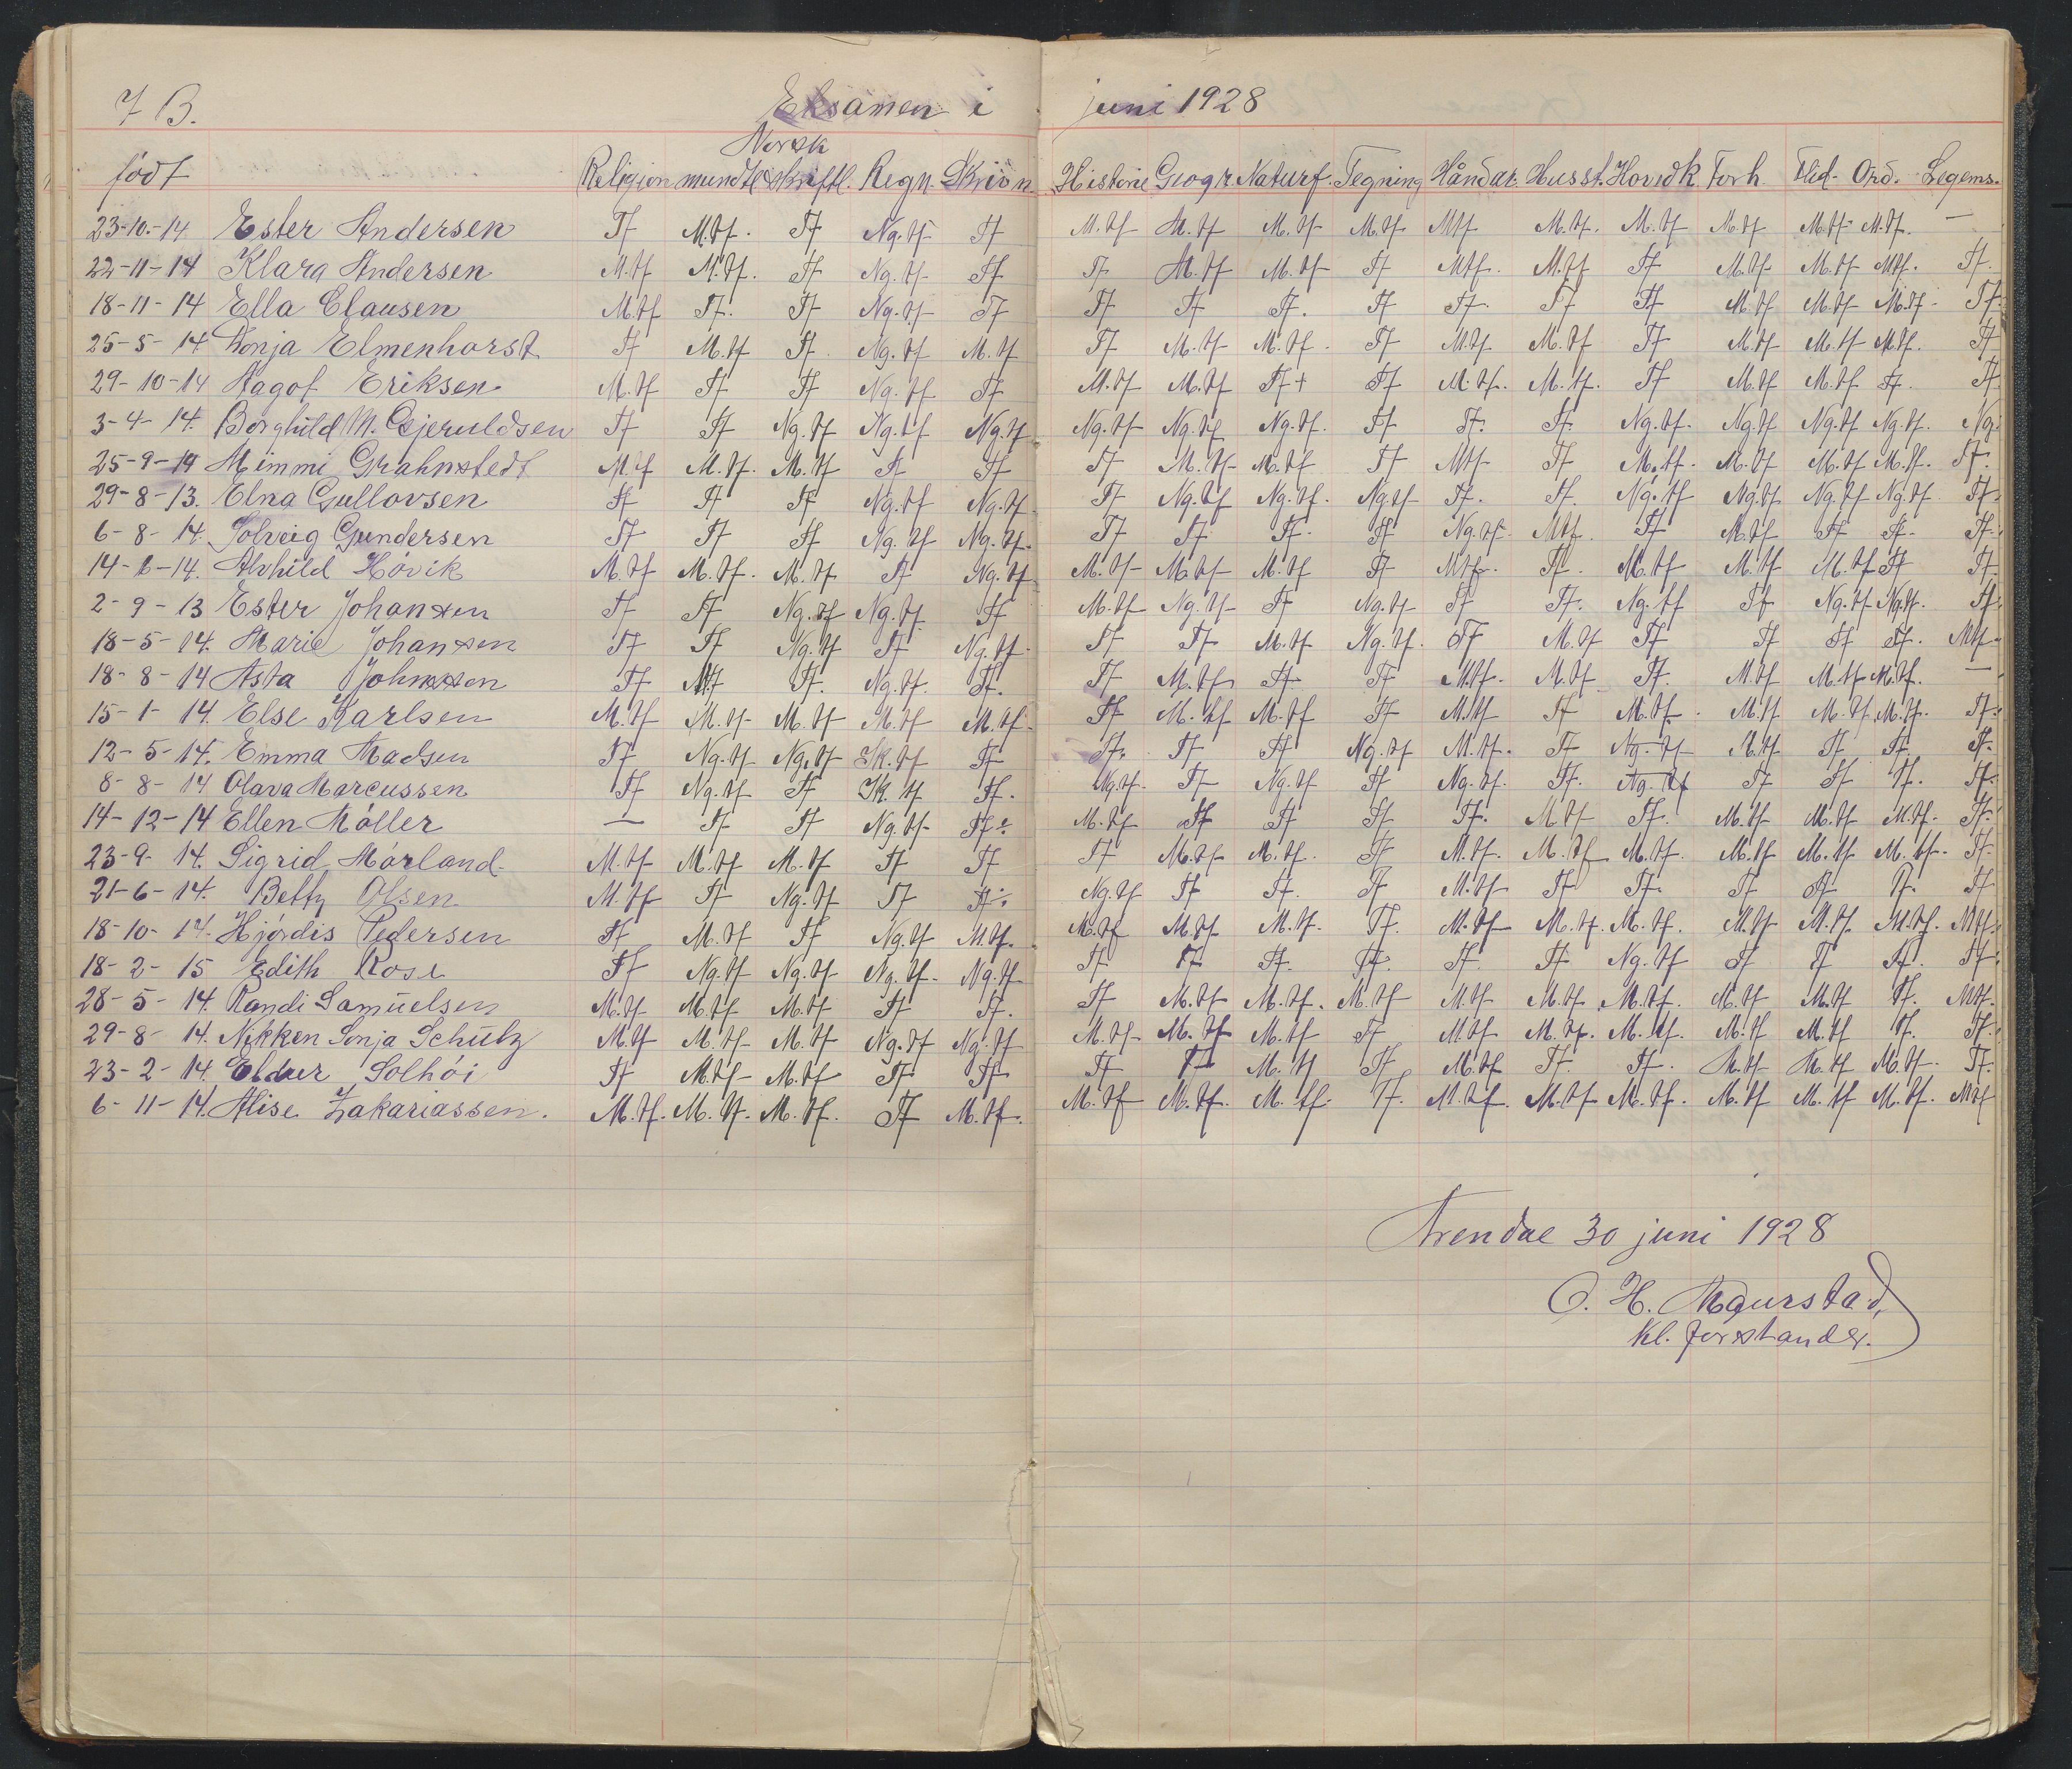 7 B. Eksamen i juni 1928
Norsk
født Religion mundtl. skriftl. Regn. Skrivn Historie Geogr. Naturf. Tegning Håndar. Husst. Hovedk Forh. Flid. Ord. Legems.
23-10-14 Ester Andersen Tf M.tf. Tf Ng.tf Tf M.tf M.tf M.tf M.tf Mtf M.tf. M.tf M.tf M.tf M.tf. —
22-11-14 Klara Andersen M.tf M.tf. Tf Ng.tf Tf Tf M.tf M.tf Tf Mtf. M.tf Tf M.tf M.tf Mtf. Tf.
18-11-14 Ella Clausen M.tf Tf. Tf Ng.tf Tf Tf Tf Tf. Tf Tf. Tf Tf M.tf M.tf M.tf Tf
25-5-14 Sonja Elmenhorst Tf M.tf Tf. Ng.tf M.tf Tf M.tf M.tf. Tf M.tf M.tf Tf M.tf M.tf M.tf. Tf
29-10-14 Aagot Eriksen M.tf Tf Tf Ng.tf Tf M.tf M.tf Tf+ Tf M.tf. M.tf. Tf M.tf M.tf Tf. Tf
3-4-14. Borghild M. Gjeruldsen Tf Tf Ng.tf Ng.tf Ng.tf Ng.tf Ng.tf Ng.tf. Tf Tf. Tf. Ng.tf. Ng.tf Ng.tf Ng.tf. Ng.
25-9-14 Mimmi Grahnstedt M.tf M.tf. M.tf Tf Tf Tf M.tf M.tf Tf Mtf Tf M.tf. M.tf M.tf M.tf. Tf.
29-8-13. Elna Gullovsen Tf Tf Tf Ng.tf Ng.tf. Tf Ng.tf Ng.tf. Ng.tf Tf. Tf. Ng.tf Ng.tf Ng.tf Ng.tf. Tf
6-8-14. Solveig Gundersen Tf Tf Tf Ng.tf Ng.tf. Tf Tf Tf. Tf Ng.tf. Mtf. Tf M.tf Tf Tf. Tf
14-6-14. Alvhild Hövik M.tf M.tf. M.tf. Tf Ng.tf M.tf M.tf M.tf Tf Mtf. Tf. M.tf M.tf M.tf Tf Tf.
2-9-13 Ester Johansen Tf Tf Ng.tf Ng.tf. Tf M.tf Ng.tf Tf Ng.tf Tf Tf. Ng.tf Tf Ng.tf Ng.tf. Tf
18-5-14. Marie Johansen Tf Tf Ng.tf Tf Ng.tf. Tf Tf M.tf Ng.tf. Tf M.tf Tf Tf Tf Tf. Mtf
18-8-14 Asta Johnsen Tf M.tf Tf. Ng.tf. Tf. Tf M.tf Tf Tf M.tf. M.tf Tf. M.tf M.tf M.tf. —
15-1-14. Else Karlsen M.tf M.tf M.tf M.tf M.tf. Tf M.tf M.tf Tf M.tf Tf M.tf. M.tf M.tf. M.tf. Tf.
12-5-14. Emma Madsen Tf Ng.tf Ng.tf Sk.tf Tf Tf. Tf Tf Ng.tf M.tf. Tf Ng.tf M.tf Tf Tf. Tf.
8-8-14 Olava Marcussen Tf Ng.tf Tf Sk.tf Tf. Ng.tf. Tf Ng.tf Tf Ng.tf. Tf. Ng.tf Tf Tf Tf. Tf
14-12-14 Ellen Möller — Tf Tf Ng.tf Tf÷ M.tf Tf Tf Tf Tf. M.tf Tf. M.tf M.tf M.tf. Tf.
23-9-14. Sigrid Mörland. M.tf M.tf M.tf Tf Tf Tf M.tf M.tf. Tf M.tf. M.tf M.tf. M.tf M.tf M.tf. Tf
21-6-14. Betty Olsen M.tf Tf Ng.tf Tf Tf÷ Ng.tf Tf Tf. Tf M.tf Tf Tf. Tf Tf Tf. Tf
18-10-14. Hjördis Pedersen Tf M.tf Tf Ng.tf M.tf. M.tf M.tf M.tf. Tf. M.tf M.tf. M.tf. M.tf M.tf. M.tf. Mtf.
18-2-15 Edith Rose Tf Ng.tf Ng.tf Ng.tf. Ng.tf Tf Tf Tf. Tf. Tf Tf Ng.tf Tf Tf Tf. Tf
28-5-14. Randi Samuelsen M.tf M.tf M.tf Tf Tf. Tf M.tf M.tf. M.tf M.tf M.tf. M.tf. M.tf M.tf Tf. Mtf.
29-8-14. Nikken Sonja Schütz M.tf M.tf M.tf Ng.tf Ng.tf M.tf M.tf M.tf Tf M.tf M.tf. M.tf. M.tf M.tf Tf. Tf.
23-2-14. Eldur Solhöi Tf M.tf M.tf Tf Tf Tf Tf M.tf Tf M.tf Tf. Tf. M.tf M.tf M.tf Tf.
6-11-14. Alise Zakariassen. M.tf. M.tf. M.tf. Tf M.tf. M.tf M.tf. M.tf. Tf. M.tf. M.tf M.tf. M.tf M.tf M.tf. Mtf
Arendal 30 juni 1928
O. H. Maurstad,
Kl. forstander.